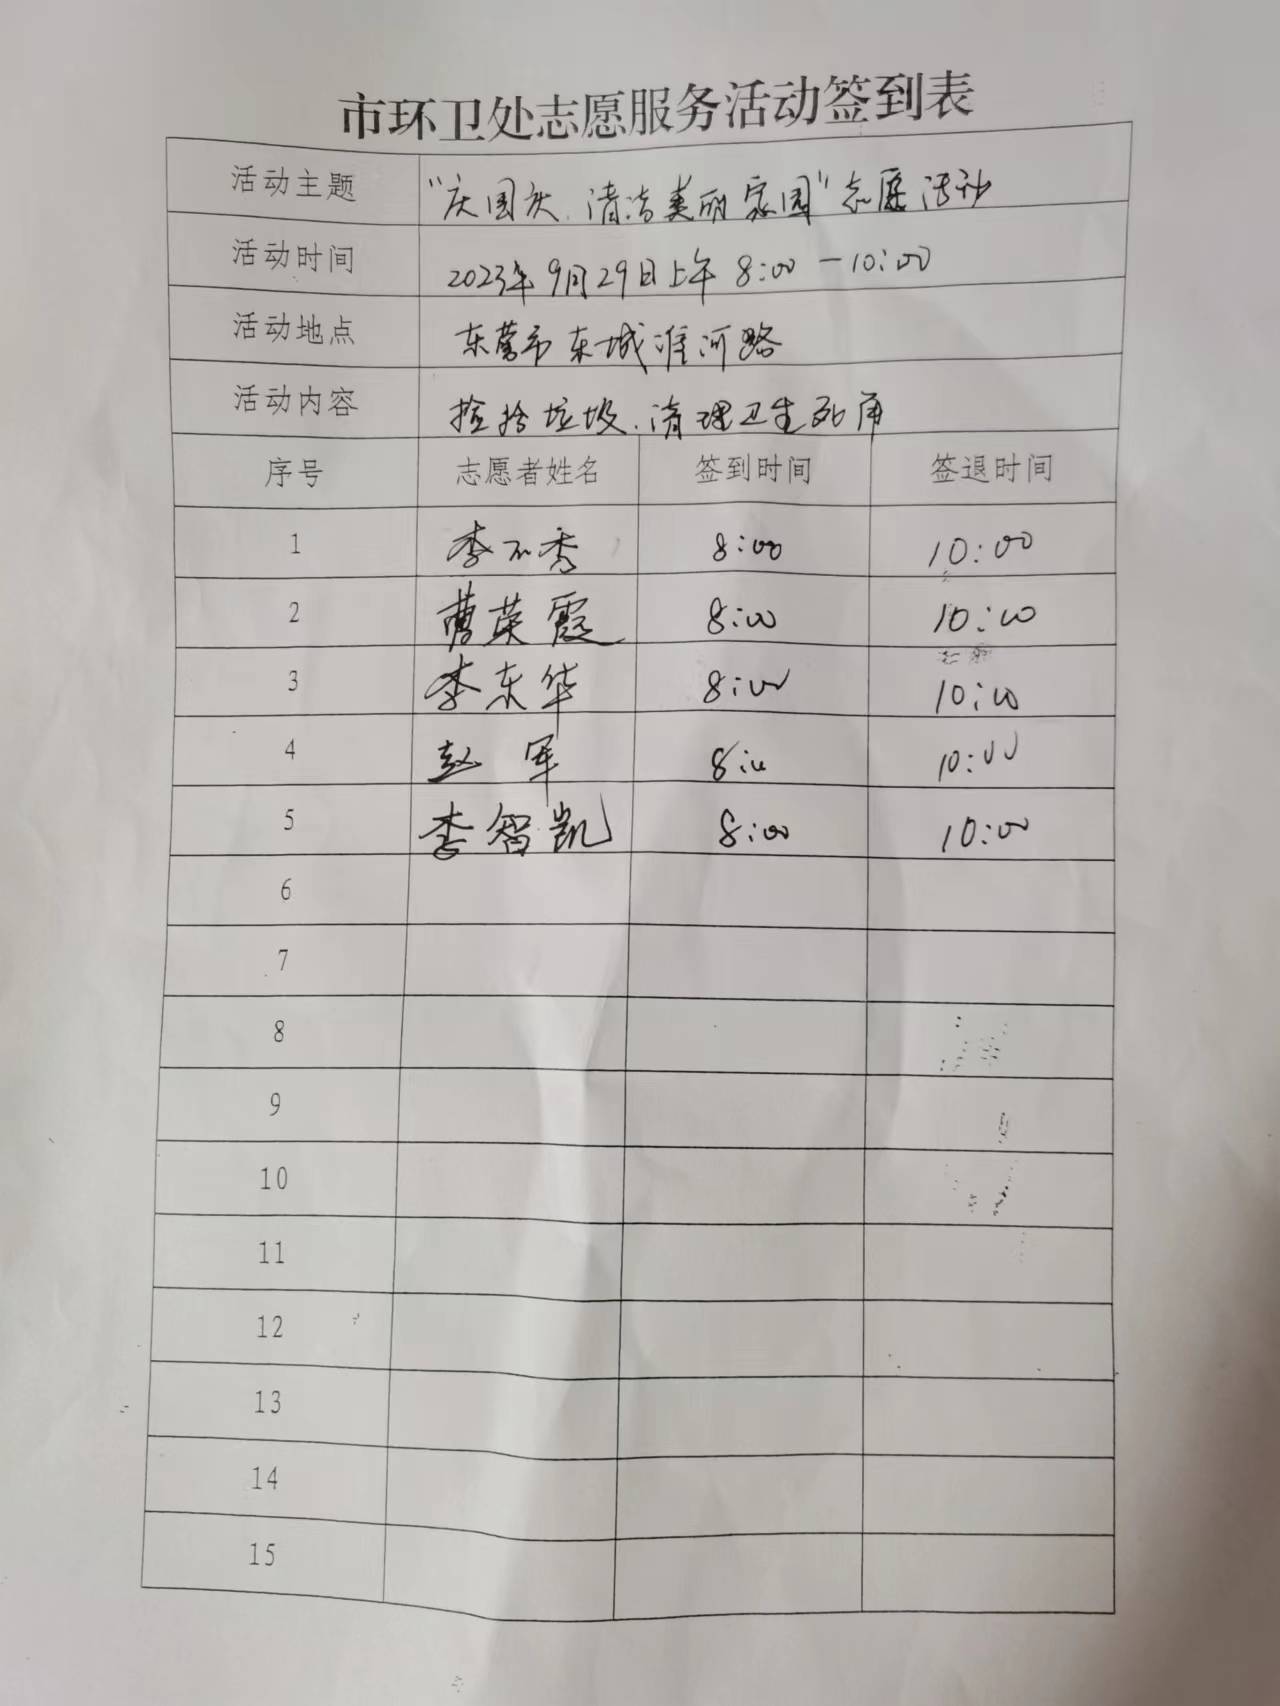 市环卫处志愿服务活动签到表
活动主题 “庆国庆.清洁美丽家园”志愿活动
活动时间 2023年9月29日上午 8:00-10:00
活动地点 东营市东城淮河路
活动内容 捡拾垃圾.清理卫生死角
序号 志愿者姓名 签到时间 签退时间
1 李不秀 8:00 10:00
2 曹荣霞 8:00 10:00
3 李东华 8:00 10:00
4 赵军 8:00 10:00
5 李智凯 8:00 10:00
6
7
8
9
10
11
12
13
14
15